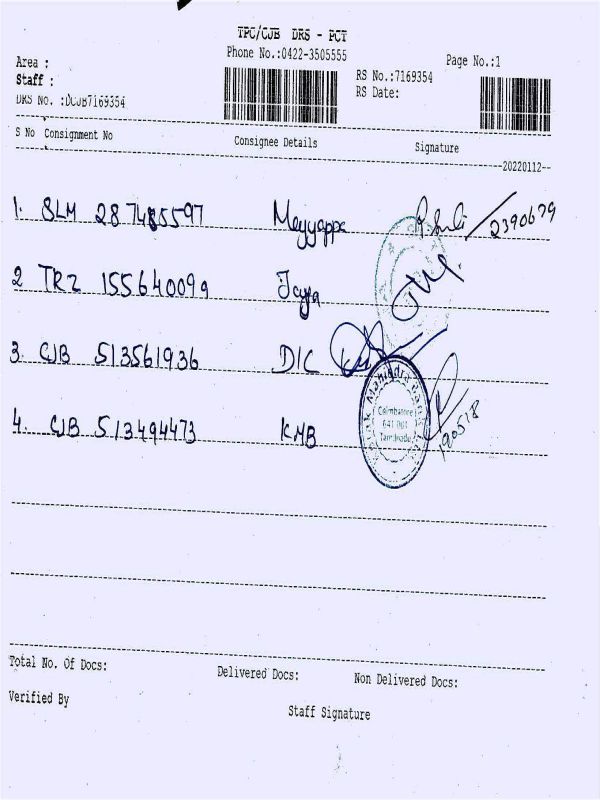 TPC/CJB DRS - PCT
Phone No.:0422-3505555
Page No.:1
Area :
RS No.:7169354
Staff :
RS Date:
DRS No. :DCJB7169354
S No Consignment No Consignee Details Signature
20220112
1. SLM 287485597 Meyyappa 2390679
2 TRZ 155640099 Jaya
3. CJB 513561936 DIC
4. CJB 513494473 KMB 190518
Mahindra
Coimbatore
641 001
Tamilnadu
Total No. Of Docs: Delivered Docs: Non Delivered Docs:
Verified By
Staff Signature